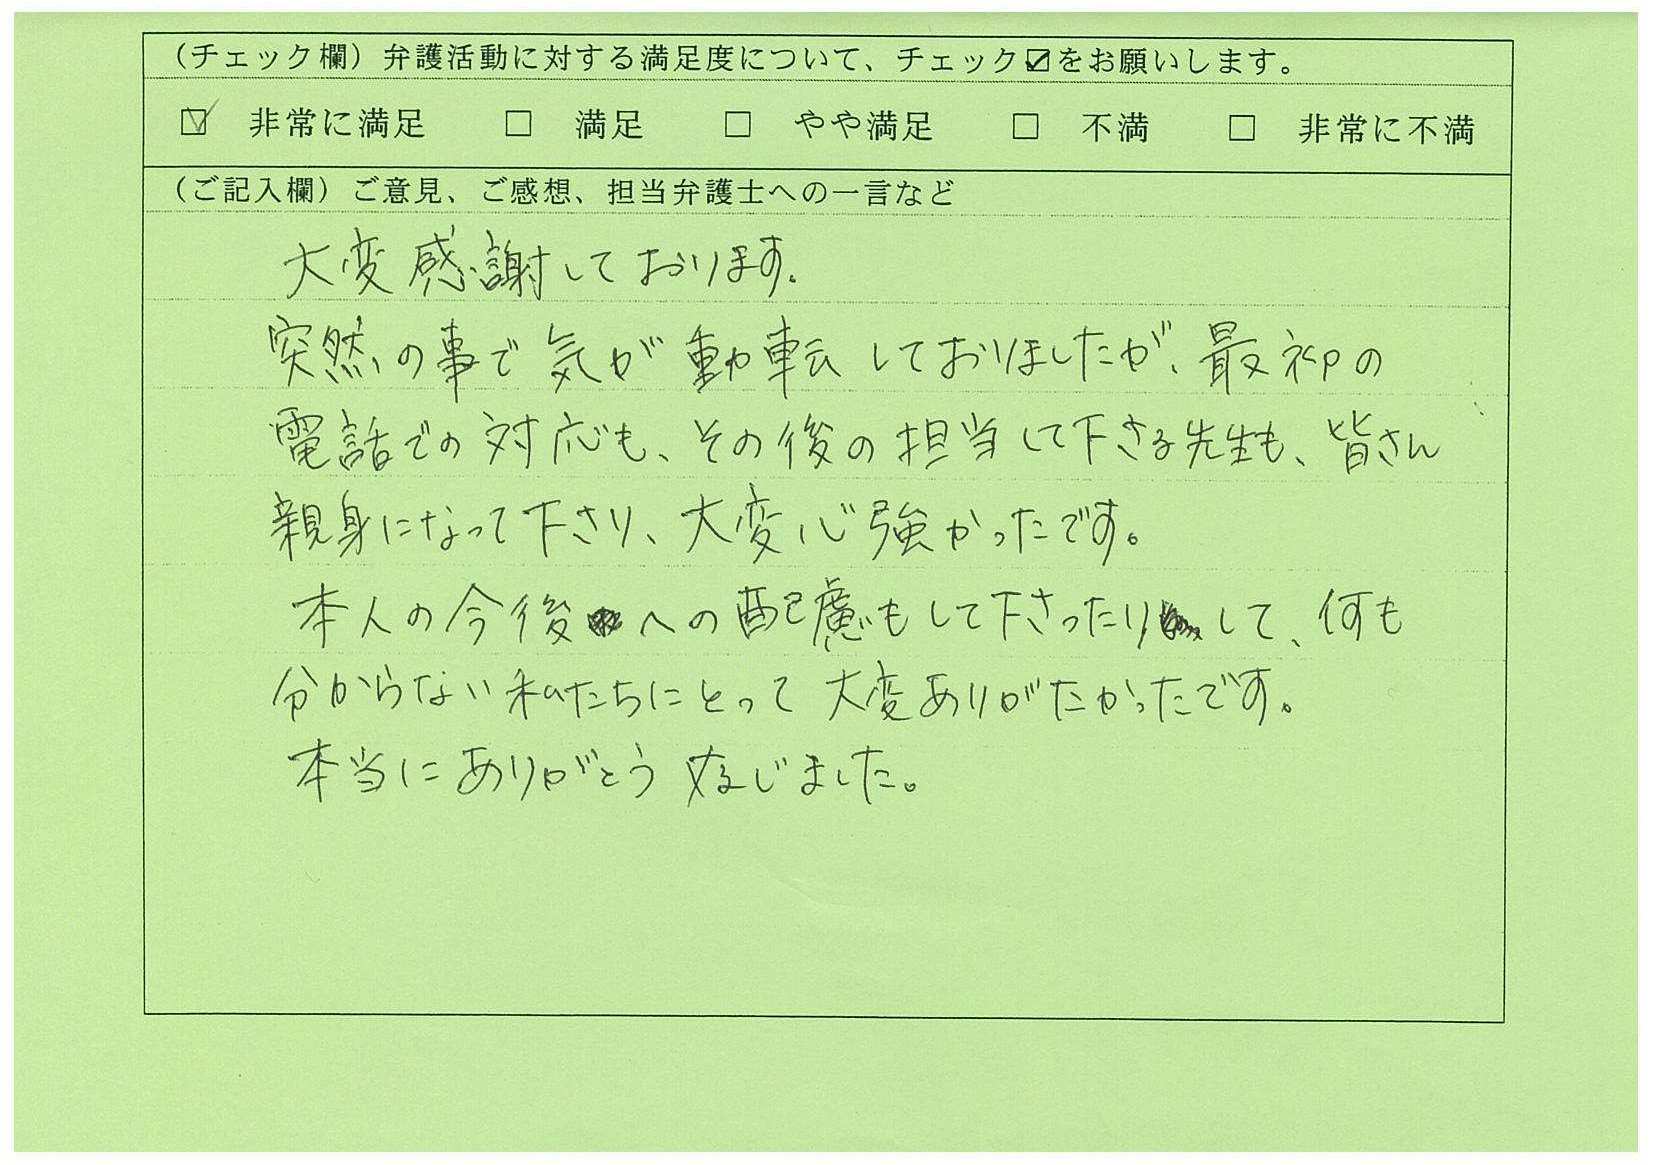 （チェック欄）弁護活動に対する満足度について、チェック☑をお願いします。
☑ 非常に満足 □ 満足 □ やや満足 □ 不満 □ 非常に不満
（ご記入欄）ご意見、ご感想、担当弁護士への一言など
大変感謝しております。
突然の事で気が動転しておりましたが、最初の
電話での対応も、その後の担当して下さる先生も、皆さん
親身になって下さり、大変心強かったです。
本人の今後への配慮もして下さったりして、何も
分からない私たちにとって大変ありがたかったです。
本当にありがとう存じました。